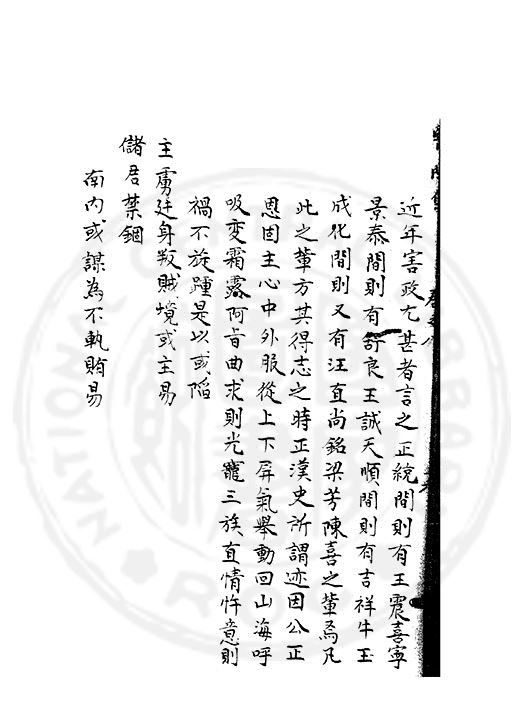 近年害政尤甚者言之正統間則有王震喜寧
景泰間則有舒良王誠天順間則有吉祥牛玉
成化間則又有汪直尚銘梁芳陳喜之輩焉凡
此之輩方其得志之時正漢史所謂迹因公正
恩固主心中外服從上下屏氣舉動回山海呼
吸變霜露阿旨曲求則光寵三族直情忤意則
禍不旋踵是以或陷
主虜廷身叛賊境或主易
儲君禁錮
南内或謀為不軌貿易